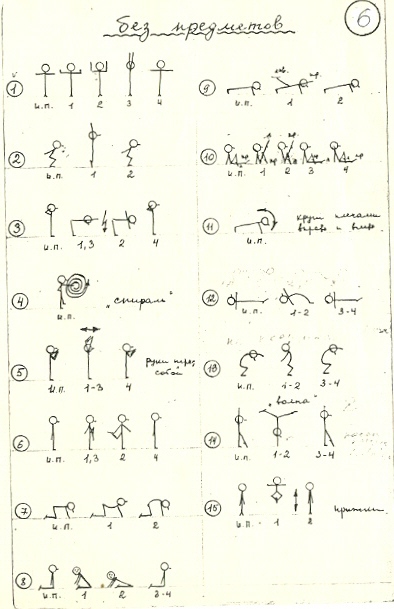 6
без предметов
1
и.п. 1 2 3 4
2
и.п. 1 2
3
и.п. 1,3 2 4
4
и.п.
„спираль"
5
и.п. 1-3 4
руки перед
собой
6
и.п. 1,3 2 4
7
и.п. 1 2
8
и.п. 1 2 3-4
9
лев. пр.
и.п. 1 2
10
и.п. 1 2 3 4
11
и.п.
круги плечами
вперёд и
12
и.п. 1-2 3-4
13
и.п. 1-2 3-4
„волна"
14
и.п. 1-2 3-4
15
и.п. 1 2
прыжки